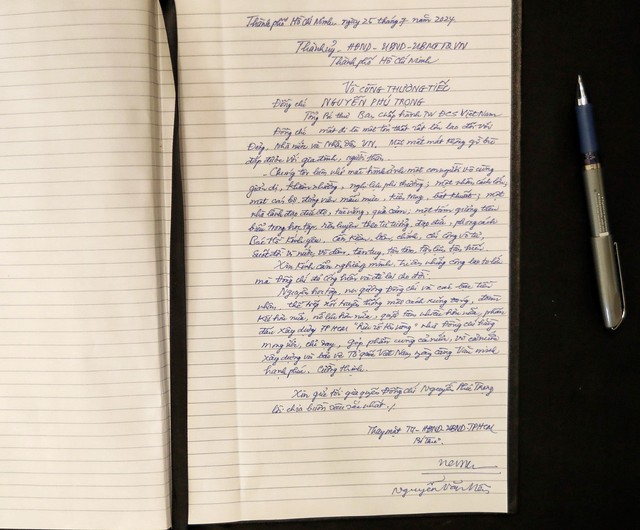 Thành phố Hồ Chí Minh, ngày 25 tháng 7 năm 2024
Thành ủy - HĐND - UBND - UBMTTQVN
Thành phố Hồ Chí Minh
Vô cùng thương tiếc
Đồng chí NGUYỄN PHÚ TRỌNG
Tổng Bí thư Ban chấp hành TW ĐCS Việt Nam
Đồng chí mất đi là một tổn thất rất lớn lao đối với
Đảng, Nhà nước và Nhân dân VN. Một mất mát không gì bù
đắp được với gia đình, người thân.
Chúng tôi luôn nhớ mãi hình ảnh một con người vô cùng
giản dị, khiêm nhường, nghị lực phi thường; một nhân cách lớn,
một cán bộ, đảng viên mẫu mực, kiên trung, bất khuất; một
nhà lãnh đạo đức độ, tài năng, quả cảm; một tấm gương tiêu
biểu trong học tập, rèn luyện theo tư tưởng, đạo đức, phong cách
Bác Hồ kính yêu. Cần, kiệm, liêm, chính, chí công vô tư,
suốt đời vì nước, vì dân, tận tụy, tận tâm, tận lực, tận hiến.
Xin kính cẩn nghiêng mình, tri ân những công lao to lớn
mà Đồng chí đã cống hiến và để lại cho đời.
Nguyện học tập, noi gương Đồng chí và các bậc tiền
nhân, thế hệ nối truyền thống một cách xứng đáng, đoàn
kết hơn nữa, nỗ lực hơn nữa, quyết tâm nhiều hơn nữa, phấn
đấu xây dựng TPHCM "Rực rỡ tên vàng" như Đồng chí hằng
mong mỏi, chỉ dạy, góp phần cùng cả nước, vì cả nước
xây dựng và bảo vệ Tổ quốc Việt Nam ngày càng văn minh
hạnh phúc, cường thịnh.
Xin gửi tới gia quyến Đồng chí Nguyễn Phú Trọng
lời chia buồn sâu sắc nhất./.
Thay mặt TU - HĐND - UBND - TPHCM
Bí thư
Nguyễn Văn Nên